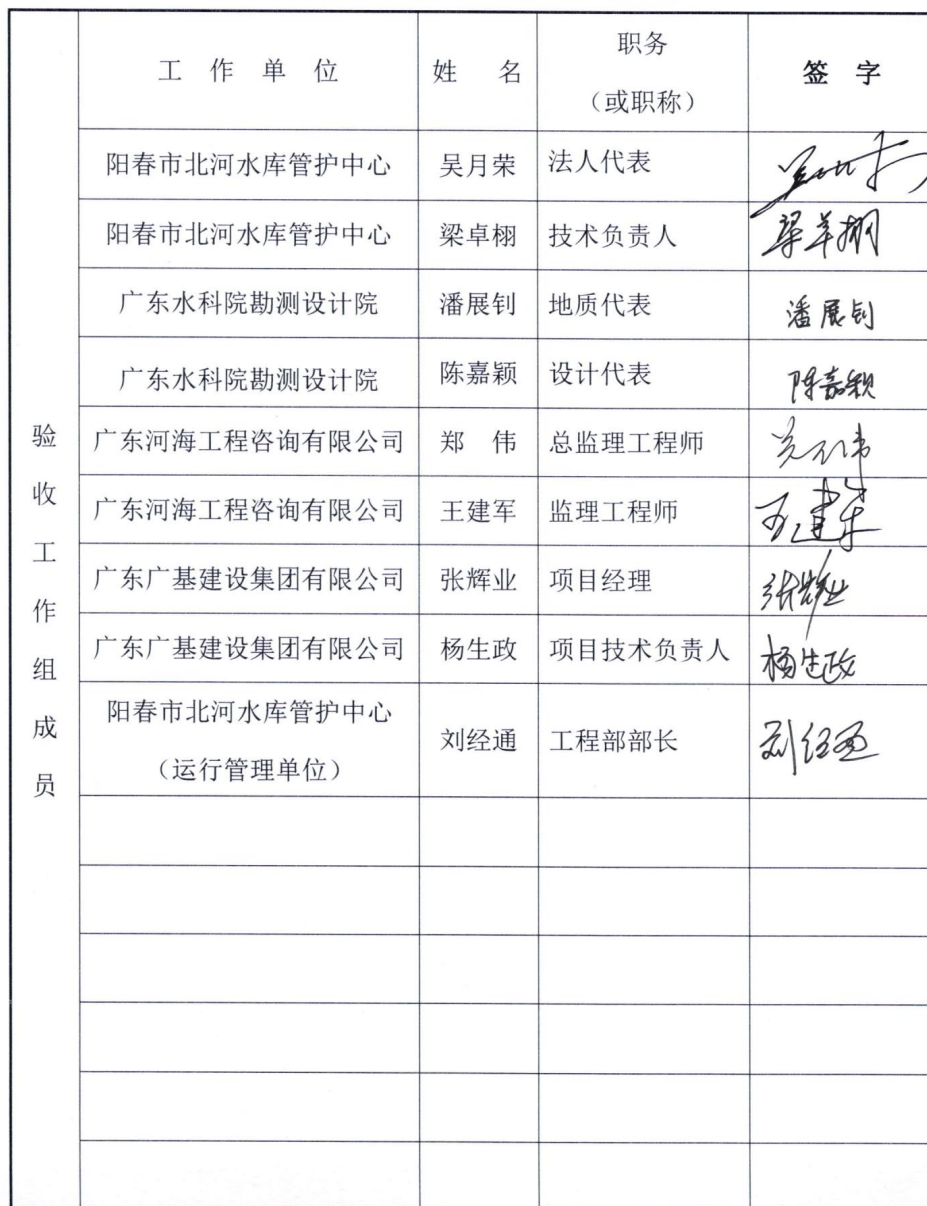 验收工作组成员
工 作 单 位 姓 名 职务（或职称） 签 字
阳春市北河水库管护中心 吴月荣 法人代表
阳春市北河水库管护中心 梁卓栩 技术负责人 梁卓栩
广东水科院勘测设计院 潘展钊 地质代表 潘展钊
广东水科院勘测设计院 陈嘉颖 设计代表 陈嘉颖
广东河海工程咨询有限公司 郑 伟 总监理工程师
广东河海工程咨询有限公司 王建军 监理工程师 王建军
广东广基建设集团有限公司 张辉业 项目经理 张辉业
广东广基建设集团有限公司 杨生政 项目技术负责人 杨生政
阳春市北河水库管护中心
（运行管理单位） 刘经通 工程部部长 刘经通